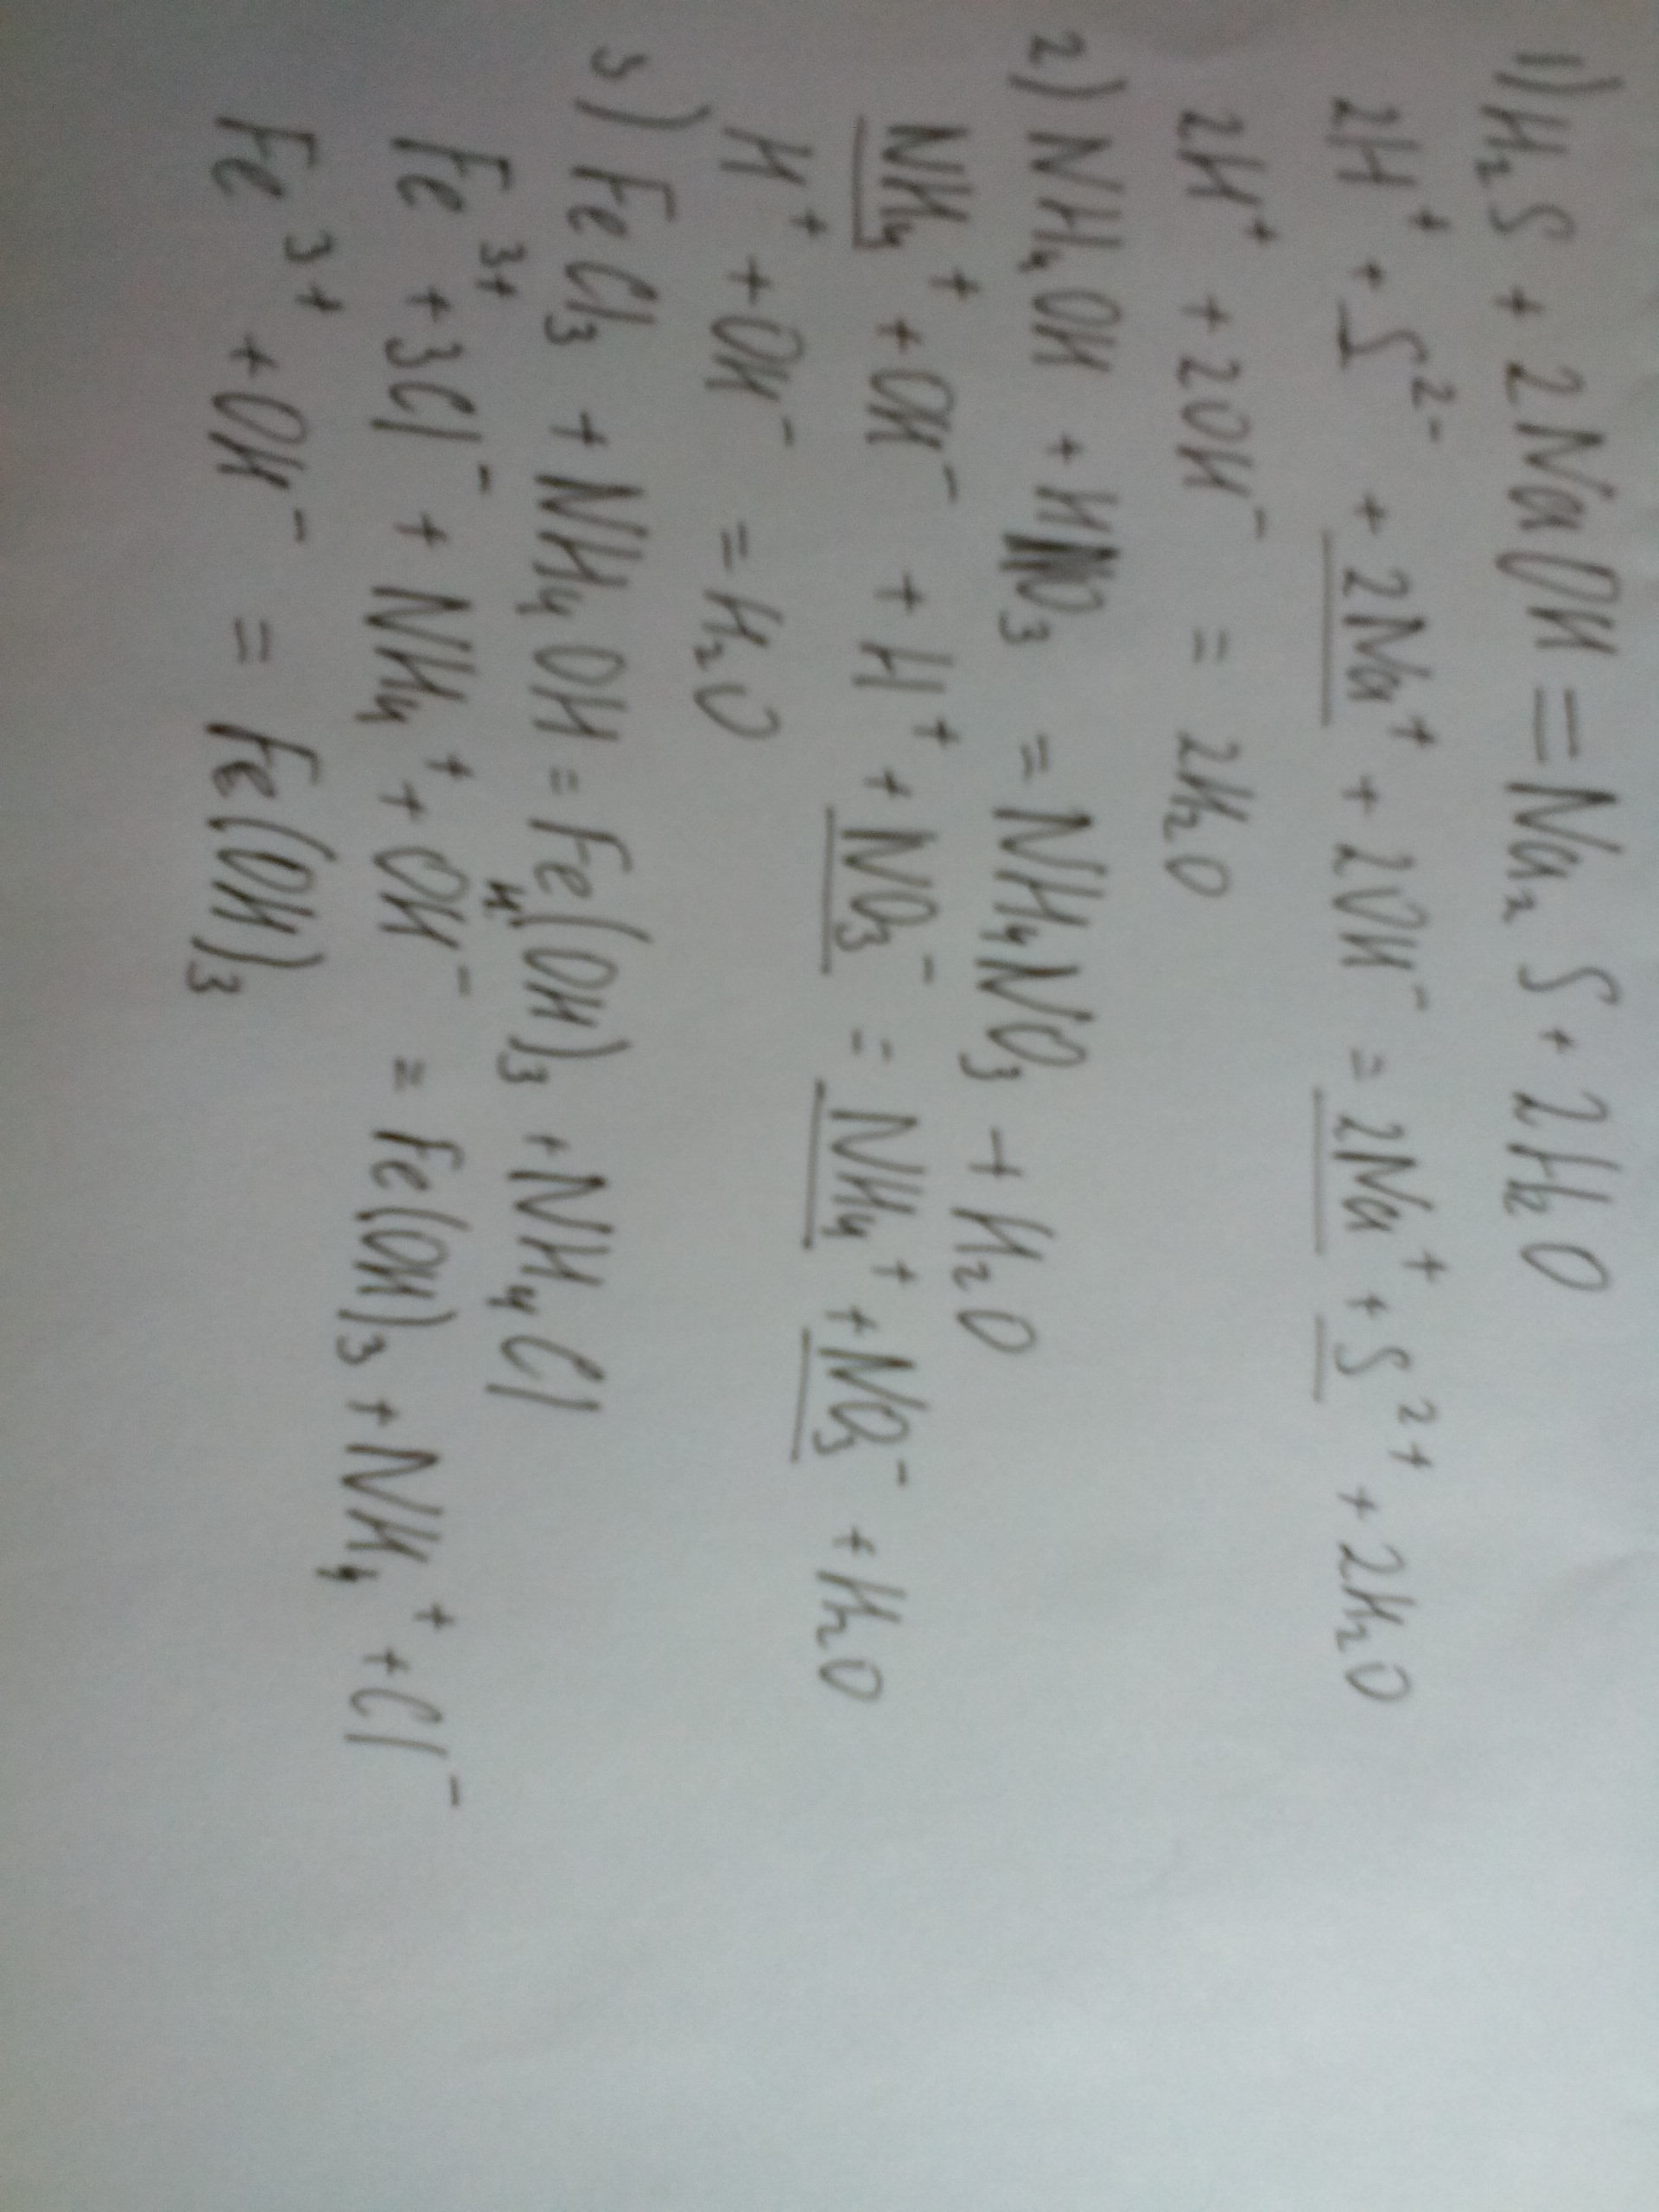 1) H₂S + 2NaOH = Na₂S + 2H₂O
2H⁺ + S²⁻ + 2Na⁺ + 2OH⁻ = 2Na⁺ + S²⁺ + 2H₂O
2H⁺ + 2OH⁻ = 2H₂O
2) NH₄OH + HNO₃ = NH₄NO₃ + H₂O
NH₄⁺ + OH⁻ + H⁺ + NO₃⁻ = NH₄⁺ + NO₃⁻ + H₂O
H⁺ + OH⁻ = H₂O
3) FeCl₃ + NH₄OH = Fe(OH)₃ + NH₄Cl
Fe³⁺ + 3Cl⁻ + NH₄⁺ + OH⁻ = Fe(OH)₃ + NH₄⁺ + Cl⁻
Fe³⁺ + OH⁻ = Fe(OH)₃